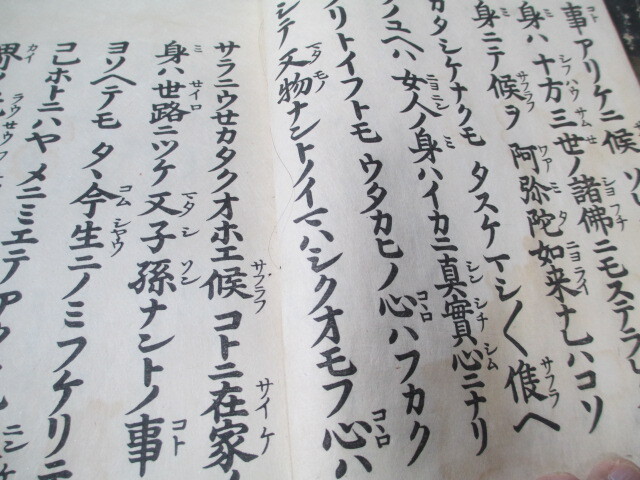 事アリケニ候
身ハ十方三世ノ諸佛ニモステラレ
身ニテ候ヲ 阿弥陀如来ナレハコソ
カタシケナクモ タスケマシ〱候ヘ
ノユヘハ 女人ノ身ハイカニ真實心ニナリ
リトイフトモ ウタカヒノ心ハフカク
シテ 又物ナントノイマハシクオモフ心ハ
サラニウセカタクオホエ候 コトニ在家ノ
身ハ世路ニツケ又子孫ナントノ事
ヨソヘテモ タヽ今生ニノミフケリテ
コレホトニハヤメニミエテアタ
界